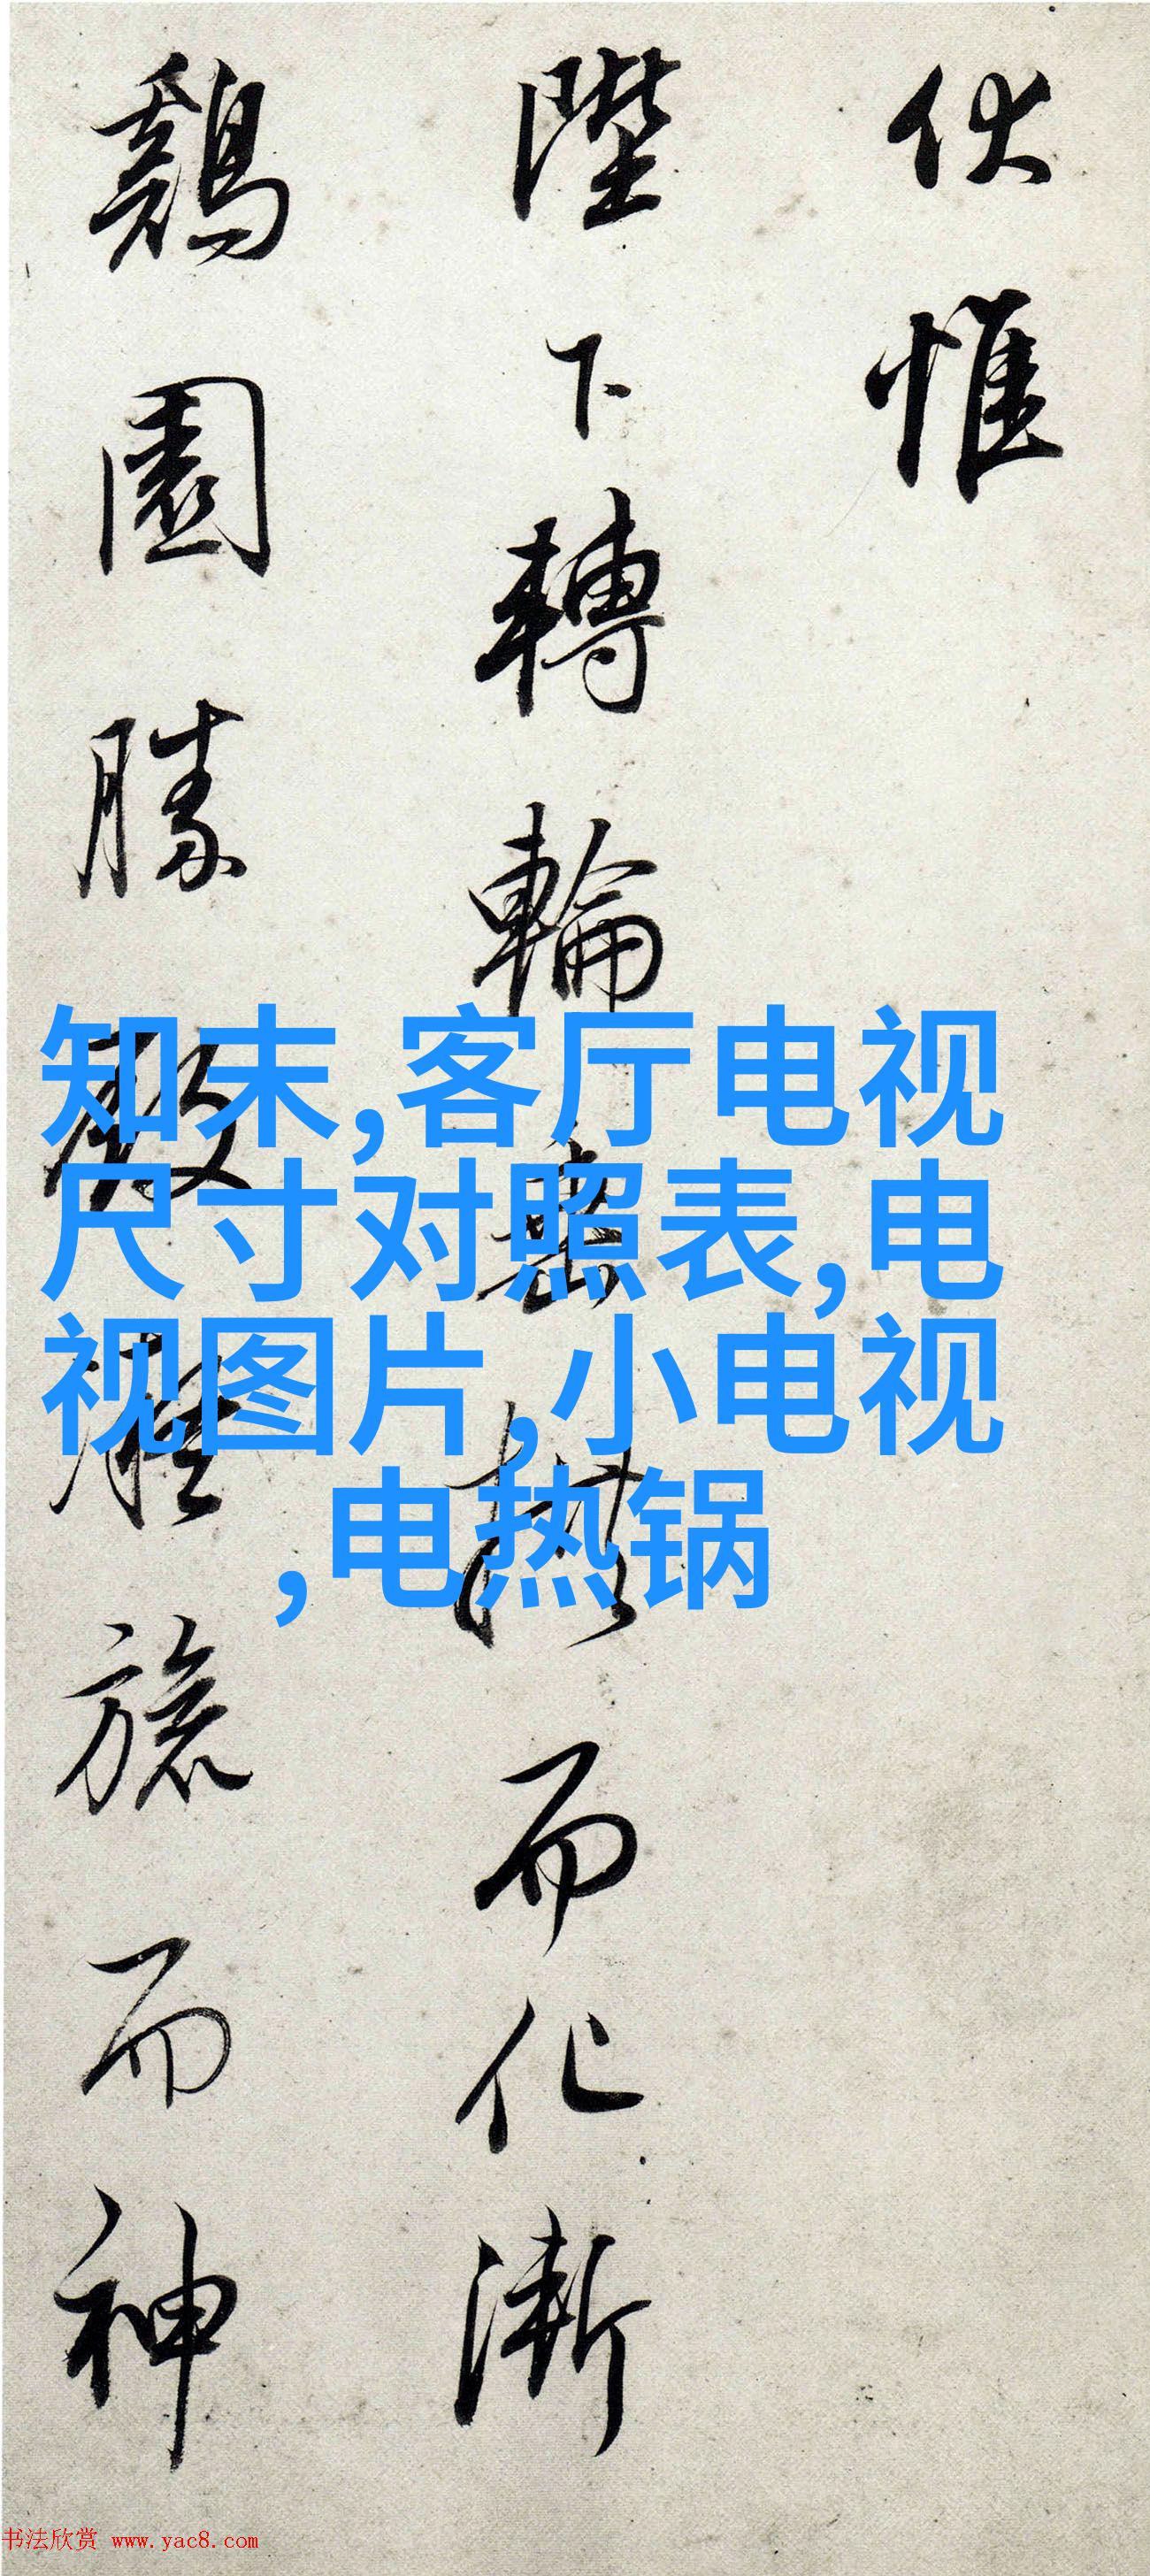 伏惟
陛下轉輪垂拱而化漸
鷄園勝殿凝旒而神
知末,客厅电视
尺寸对照表,电
视图片,小电视
,电热锅
书法欣赏 www.yac8.com